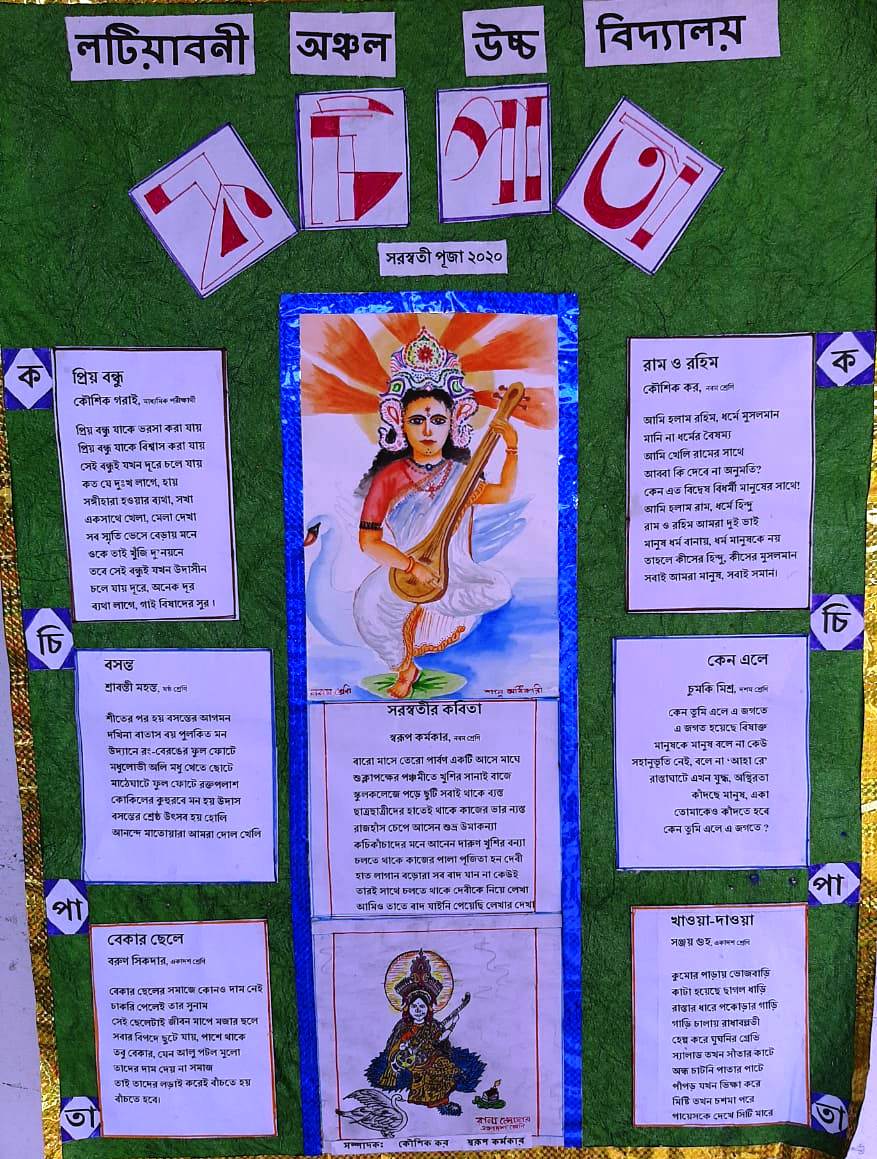 লটিয়াবনী অঞ্চল উচ্চ বিদ্যালয়
কচিপাতা
সরস্বতী পূজা ২০২০
ক
প্রিয় বন্ধু
কৌশিক গরাই, মাধ্যমিক পরীক্ষার্থী
প্রিয় বন্ধু যাকে ভরসা করা যায়
প্রিয় বন্ধু যাকে বিশ্বাস করা যায়
সেই বন্ধুই যখন দূরে চলে যায়
কত যে দুঃখ লাগে, হায়
সঙ্গীহারা হওয়ার ব্যথা, সখা
একসাথে খেলা, মেলা দেখা
সব স্মৃতি ভেসে বেড়ায় মনে
ওকে তাই খুঁজি দু'নয়নে
তবে সেই বন্ধুই যখন উদাসীন
চলে যায় দূরে, অনেক দূর
ব্যথা লাগে, গাই বিষাদের সুর।
চি
বসন্ত
শ্রাবন্তী মহন্ত, ষষ্ঠ শ্রেণি
শীতের পর হয় বসন্তের আগমন
দখিনা বাতাস বয় পুলকিত মন
উদ্যানে রং-বেরঙের ফুল ফোটে
মধুলোভী অলি মধু খেতে ছোটে
মাঠেঘাটে ফুল ফোটে রক্তপলাশ
কোকিলের কুহুরবে মন হয় উদাস
বসন্তের শ্রেষ্ঠ উৎসব হয় হোলি
আনন্দে মাতোয়ারা আমরা দোল খেলি
পা
বেকার ছেলে
বরুণ সিকদার, একাদশ শ্রেণি
বেকার ছেলের সমাজে কোনও দাম নেই
চাকরি পেলেই তার সুনাম
সেই ছেলেটাই জীবন মাপে মজার ছলে
সবার বিপদে ছুটে যায়, পাশে থাকে
তবু বেকার, যেন আলু পটল মুলো
তাদের দাম দেয় না সমাজ
তাই তাদের লড়াই করেই বাঁচতে হয়
বাঁচতে হবে।
তা
নবম শ্রেণি
সরস্বতীর কবিতা
স্বরূপ কর্মকার, নবম শ্রেণি
বারো মাসে তেরো পার্বণ একটি আসে মাঘে
শুক্লাপক্ষের পঞ্চমীতে খুশির সানাই বাজে
স্কুলকলেজে পড়ে ছুটি সবাই থাকে ব্যস্ত
ছাত্রছাত্রীদের হাতেই থাকে কাজের ভার ন্যস্ত
রাজহাঁস চেপে আসেন শুভ্র উমাকন্যা
কচিকাঁচাদের মনে আনেন দারুণ খুশির বন্যা
চলতে থাকে কাজের পালা পূজিতা হন দেবী
হাত লাগান বড়োরা সব বাদ যান না কেউই
তারই সাথে চলতে থাকে দেবীকে নিয়ে লেখা
আমিও তাতে বাদ যাইনি পেয়েছি লেখার দেখা
সম্পাদক: কৌশিক কর স্বরূপ কর্মকার
ক
রাম ও রহিম
কৌশিক কর, নবম শ্রেণি
আমি হলাম রহিম, ধর্মে মুসলমান
মানি না ধর্মের বৈষম্য
আমি খেলি রামের সাথে
আব্বা কি দেবে না অনুমতি?
কেন এত বিদ্বেষ বিধর্মী মানুষের সাথে!
আমি হলাম রাম, ধর্মে হিন্দু
রাম ও রহিম আমরা দুই ভাই
মানুষ ধর্ম বানায়, ধর্ম মানুষকে নয়
তাহলে কীসের হিন্দু, কীসের মুসলমান
সবাই আমরা মানুষ, সবাই সমান।
চি
কেন এলে
চুমকি মিশ্র, দশম শ্রেণি
কেন তুমি এলে এ জগতে
এ জগত হয়েছে বিষাক্ত
মানুষকে মানুষ বলে না কেউ
সহানুভূতি নেই, বলে না 'আহা রে'
রাস্তাঘাটে এখন যুদ্ধ, অস্থিরতা
কাঁদছে মানুষ, একা
তোমাকেও কাঁদতে হবে
কেন তুমি এলে এ জগতে ?
পা
খাওয়া-দাওয়া
সঞ্জয় গুহ, একাদশ শ্রেণি
কুমোর পাড়ায় ভোজবাড়ি
কাটা হয়েছে ছাগল ধাড়ি
রাস্তার ধারে পকোড়ার গাড়ি
গাড়ি চালায় রাধাবল্লভী
হেল্প করে ঘুঘনির গ্রেভি
স্যালাড তখন সাঁতার কাটে
অন্ধ চাটনি পাতার পাটে
পাঁপড় যখন ভিক্ষা করে
মিষ্টি তখন চশমা পরে
পায়েসকে দেখে সিটি মারে
তা